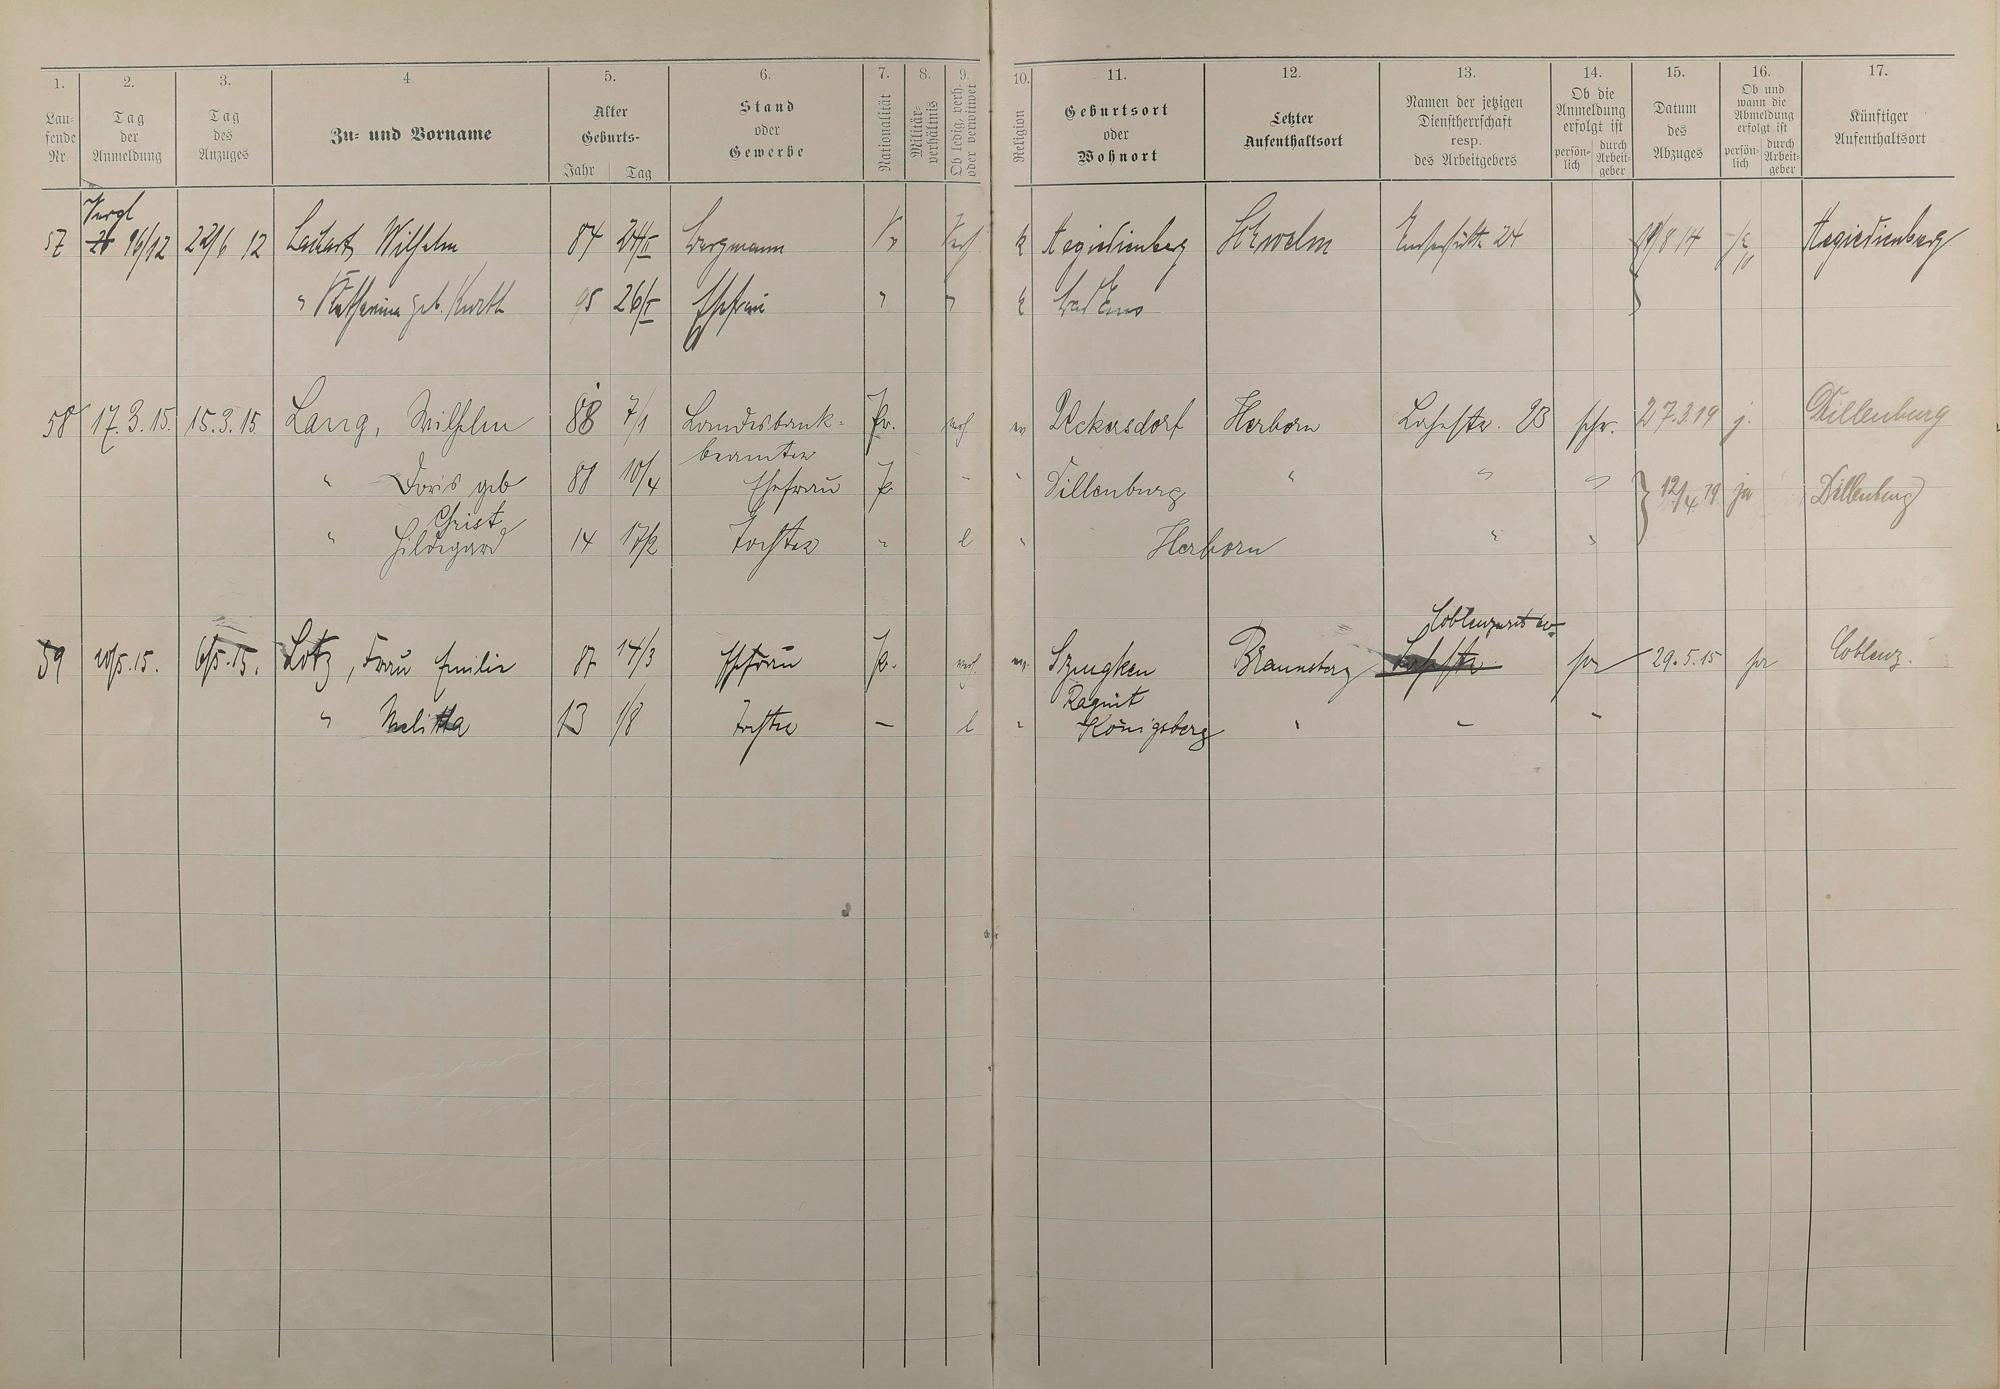 1. 2. 3. 4. 5. 6. 7. 8. 9. 10. 11. 12. 13. 14. 15. 16. 17.
Lau-
fende
Nr.
Tag
der
Anmeldung
Tag
des
Anzuges
Zu- und Vorname
Alter
Geburts-
Jahr Tag
Stand
oder
Gewerbe
Nationalität
Militär-
verhältnis
Ob ledig, verh.
oder verwitwet
Religion
Geburtsort
oder
Wohnort
Letzter
Aufenthaltsort
Namen der jetzigen
Dienstherrschaft
resp.
des Arbeitgebers
Ob die
Anmeldung
erfolgt ist
persön-
lich
durch
Arbeit-
geber
Datum
des
Abzuges
Ob und
wann die
Abmeldung
erfolgt ist
persön-
lich
durch
Arbeit-
geber
Künftiger
Aufenthaltsort
57 22/6 12 Wilhelm 84 Bergmann Pr k Aegidienberg Schwelm 24 19/8 14 Aegidienberg
" Katharina geb. Kurth 95 Ehefrau " " k Bad Ems
58 17.3.15. 15.3.15 Lang, Wilhelm 88 7/1 Landesbank- Pr. verh. ev Uckersdorf Herborn Lahnstr. 23 schr. 27.3.19 j. Dillenburg
beamter
" Doris geb 88 10/4 Ehefrau Pr - " Dillenburg " " " 12/4.19 ja Dillenburg
Christ
" Hildegard 14 17/2 Tochter " l " Herborn " "
59 10/5.15. 6/5.15. Lotz, Frau Emilie 87 14/3 Ehefrau Pr. verh. ev. Szugken Braunsberg Lahnstr. 29.5.15 Coblenz.
Ragnit
" Melitta 13 1/8 Tochter - l " Königsberg " - -